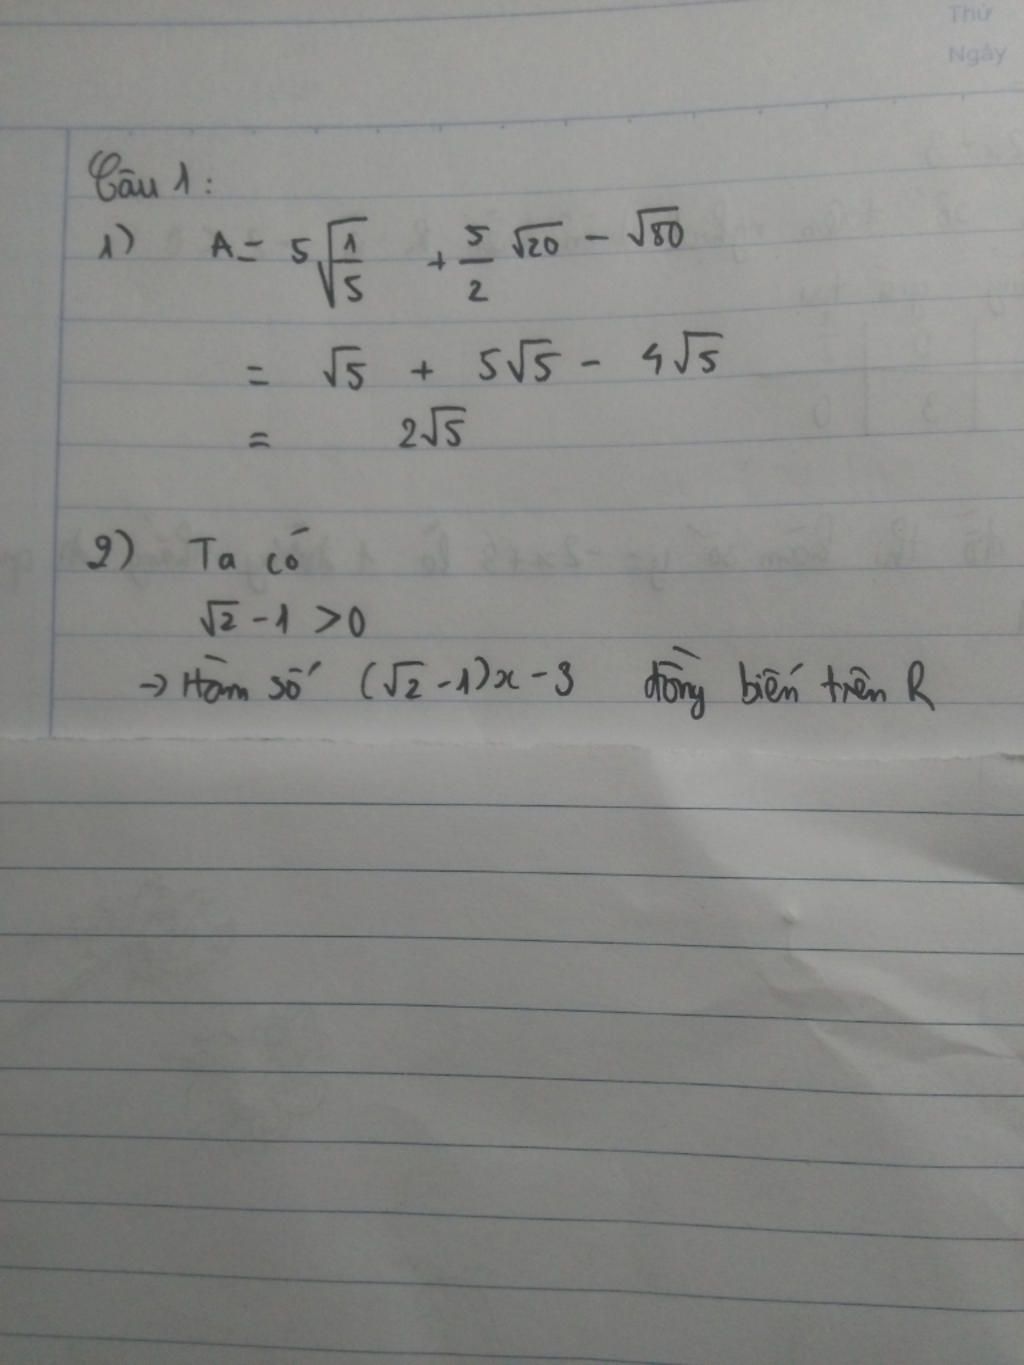 Thứ
Ngày
Câu 1:
1) A = 5√(1/5) + 5/2 √20 - √80
= √5 + 5√5 - 4√5
= 2√5
2) Ta có
√2 - 1 > 0
→ Hàm số (√2 - 1)x - 3 đồng biến trên R